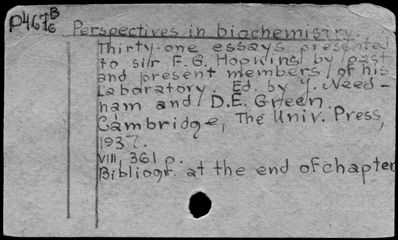 P467B6
Perspectives in biochemistry.
Thirty-one essays presented
to sir F.G. Hopkins by past
and present members of his
Laboratory. Ed. by J. Need-
ham and D.E. Green.
Cambridge, The Univ. Press,
1937.
VIII, 361 p.
Bibliogr. at the end of chapter